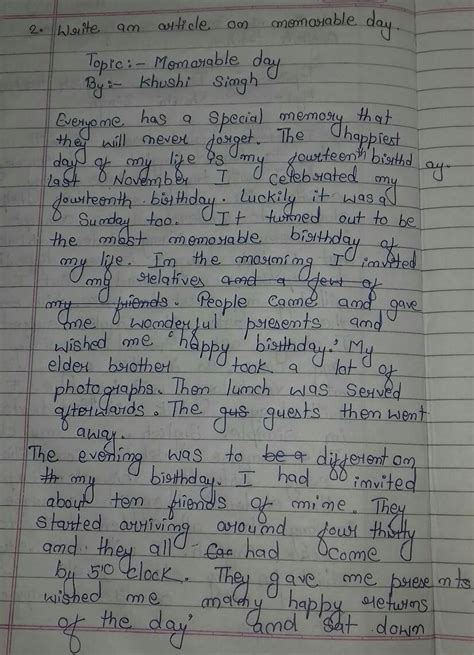 2. Write an article on memorable day.
Topic:- Memorable day
By:- Khushi Singh
Everyone has a special memory that
they will never forget. The happiest
day of my life is my fourteenth birthday.
last November I celebrated my
fourteenth birthday. Luckily it was a
Sunday too. It turned out to be
the most memorable birthday of
my life. In the morning I invited
my relatives and a few of
my friends. People came and gave
me wonderful presents and
wished me 'happy birthday.' My
elder brother took a lot of
photographs. Then lunch was served
afterwards. The gus guests then went
away.
The evening was to be a different on
th my birthday. I had invited
about ten friends of mine. They
started arriving around four thirty
and they all Cac had come
by 5'O clock. They gave me presents
wished me many happy returns
of the day' and sat down